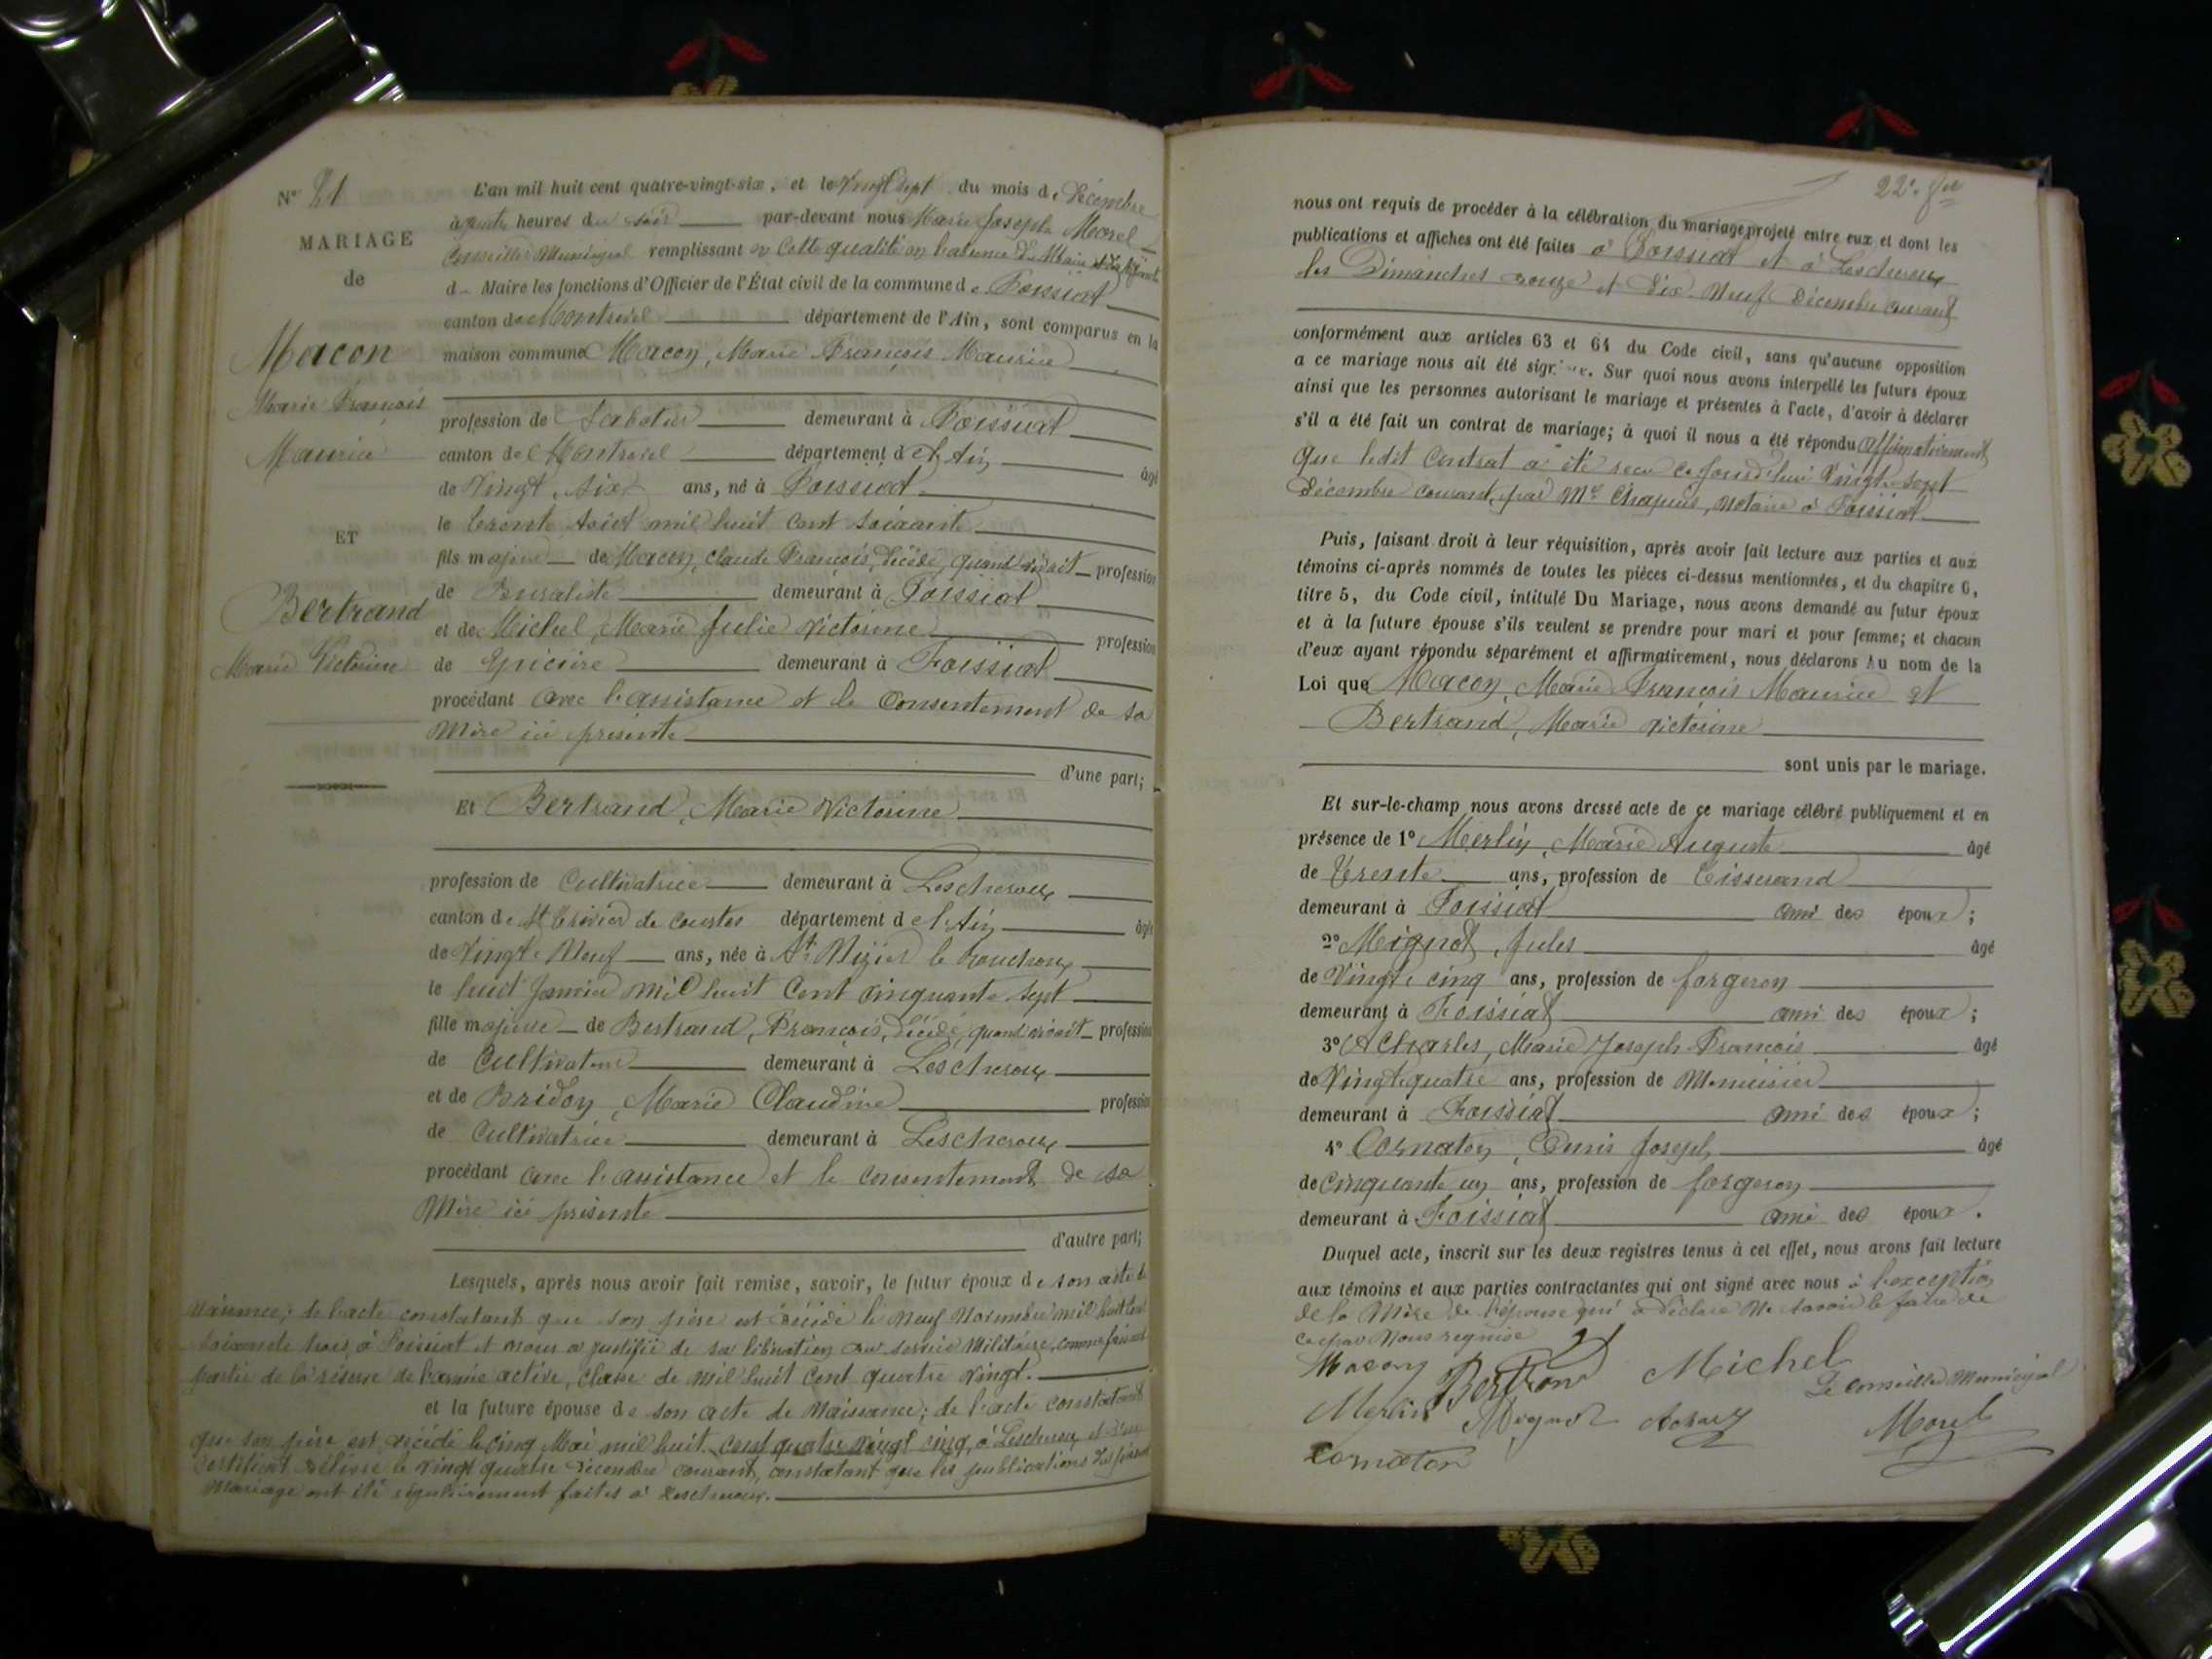 N° 21
MARIAGE
de
Macon
Marie François
Maurice
ET
Bertrand
Marie Victorine
L'an mil huit cent quatre-vingt-six, et le Vingt sept du mois de Décembre
à quatre heures du soir par-devant nous Marie Joseph Morel
Conseiller Municipal remplissant en cette qualité en l'absence du Maire et de l'adjoint
d Maire les fonctions d'Officier de l'État civil de la commune de Foissiat
canton de Montrevel département de l'Ain, sont comparus en la
maison commune Macon, Marie François Maurice
profession de Sabotier demeurant à Foissiat
canton de Montrevel département de l'Ain âgé
de Vingt six ans, né à Foissiat
le trente Août mil huit cent soixante
fils majeur de Macon, Claude François, décédé, quand vivait profession
de Buraliste demeurant à Foissiat
et de Michel, Marie Julie Victorine profession
de Epicière demeurant à Foissiat
procédant avec l'assistance et le Consentement de sa
Mère ici présente
d'une part;
Et Bertrand, Marie Victorine
profession de Cultivatrice demeurant à Lescheroux
canton de St Trivier de Courtes département de l'Ain âgée
de Vingt Neuf ans, née à St Nizier le bouchoux
le huit Janvier mil huit Cent cinquante sept
fille majeure de Bertrand, François, décédé, quand vivait profession
de Cultivateur demeurant à Lescheroux
et de Bridon, Marie Claudine profession
de Cultivatrice demeurant à Lescheroux
procédant avec l'assistance et le consentement de sa
Mère ici présente
d'autre part;
Lesquels, après nous avoir fait remise, savoir, le futur époux de son acte de
Naissance; de l'acte constatant que son père est décédé le Neuf Novembre mil huit cent
soixante trois, à Foissiat et nous a justifié de sa libération au service Militaire, comme faisant
partie de la réserve de l'armée active, classe de mil huit cent quatre vingt.
et la future épouse de son acte de Naissance; de l'acte constatant
que son père est décédé le cinq Mai mil huit cent quatre vingt cinq, à Lescheroux et d'un
Certificat délivré le vingt quatre décembre courant, constatant que les publications du présent
Mariage ont été régulièrement faites à Lescheroux.
22e
nous ont requis de procéder à la célébration du mariage projeté entre eux et dont les
publications et affiches ont été faites à Foissiat et à Lescheroux
les Dimanches douze et dix-Neuf Décembre courant
conformément aux articles 63 et 64 du Code civil, sans qu'aucune opposition
a ce mariage nous ait été signifiée. Sur quoi nous avons interpellé les futurs époux
ainsi que les personnes autorisant le mariage et présentes à l'acte, d'avoir à déclarer
s'il a été fait un contrat de mariage; à quoi il nous a été répondu affirmativement
que ledit contrat a été reçu ce jourd'hui Vingt-sept
Décembre courant, par Me Chapuis, notaire à Foissiat
Puis, faisant droit à leur réquisition, après avoir fait lecture aux parties et aux
témoins ci-après nommés de toutes les pièces ci-dessus mentionnées, et du chapitre 6,
titre 5, du Code civil, intitulé Du Mariage, nous avons demandé au futur époux
et à la future épouse s'ils veulent se prendre pour mari et pour femme; et chacun
d'eux ayant répondu séparément et affirmativement, nous déclarons Au nom de la
Loi que Macon, Marie François Maurice et
Bertrand, Marie Victorine
sont unis par le mariage.
Et sur-le-champ nous avons dressé acte de ce mariage célébré publiquement et en
présence de 1° Merlin, Marie Auguste âgé
de Trente ans, profession de Tisserand
demeurant à Foissiat ami des époux;
2° Mignot, Jules âgé
de Vingt cinq ans, profession de forgeron
demeurant à Foissiat ami des époux;
3° Marie Joseph François âgé
de Vingt quatre ans, profession de Menuisier
demeurant à Foissiat ami des époux;
4° Cornaton, Denis Joseph âgé
de Cinquante un ans, profession de forgeron
demeurant à Foissiat ami des époux.
Duquel acte, inscrit sur les deux registres tenus à cet effet, nous avons fait lecture
aux témoins et aux parties contractantes qui ont signé avec nous à l'exception
de la Mère de l'épouse qui a déclaré Ne savoir le faire de
ce par Nous requise
Macon Bertrand Michel
Le Conseiller Municipal
Merlin Mignot Morel
Cornaton